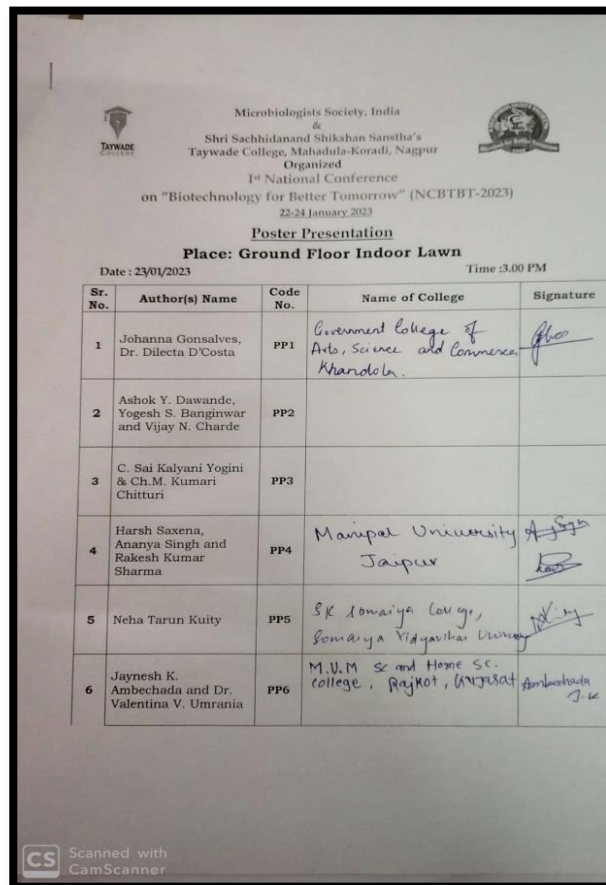 TAYWADE
COLLEGE
Microbiologists Society, India
&
Shri Sachhidanand Shikshan Sanstha's
Taywade College, Mahadula-Koradi, Nagpur
Organized
1st National Conference
on "Biotechnology for Better Tomorrow" (NCBTBT-2023)
22-24 January 2023
Poster Presentation
Place: Ground Floor Indoor Lawn
Date : 23/01/2023 Time :3.00 PM
Sr. No. Author(s) Name Code No. Name of College Signature
1 Johanna Gonsalves, Dr. Dilecta D'Costa PP1 Government College of Arts, Science and Commerce, Khandola.
2 Ashok Y. Dawande, Yogesh S. Banginwar and Vijay N. Charde PP2
3 C. Sai Kalyani Yogini & Ch.M. Kumari Chitturi PP3
4 Harsh Saxena, Ananya Singh and Rakesh Kumar Sharma PP4 Manipal University Jaipur
5 Neha Tarun Kuity PP5 SK Somaiya College, Somaiya Vidyavihar University
6 Jaynesh K. Ambechada and Dr. Valentina V. Umrania PP6 M.V.M Sc and Home Sc. college, Rajkot, Gujarat Ambechada J.K
CS Scanned with
CamScanner